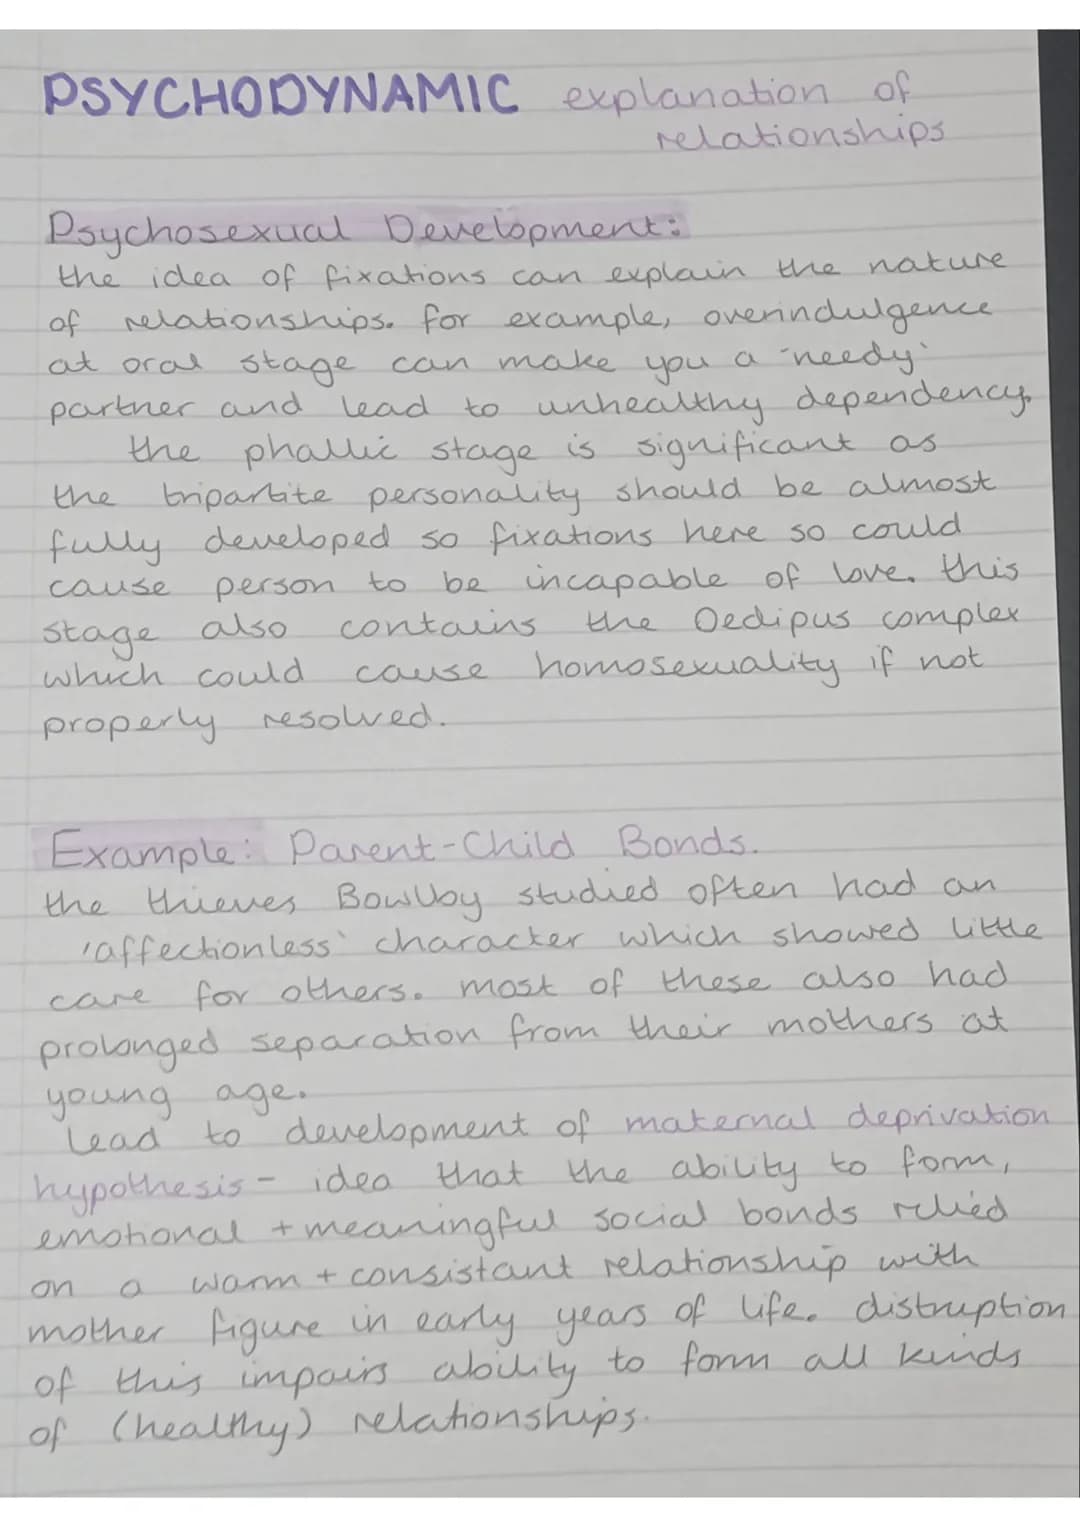 PSYCHODYNAMIC explanation of
relationships
Psychosexual Development:
the idea of fixations can explain the nature
of relationships. for example, overindulgence
at oral stage can make you a 'needy'
partner and lead to unhealthy dependency.
the phallic stage is significant as
the tripartite personality should be almost
fully developed so fixations here so could
cause person to be incapable of love. this
stage also contains the Oedipus complex
which could cause homosexuality if not
properly resolved.
Example: Parent-Child Bonds.
the thieves Bowlby studied often had an
'affectionless' character which showed little
care for others. most of these also had
prolonged separation from their mothers at
young age.
lead to development of maternal deprivation
hypothesis - idea that the ability to form,
emotional + meaningful social bonds relied
on a warm + consistant relationship with
mother figure in early years of life. distruption
of this impairs ability to form all kinds
of (healthy) relationships.